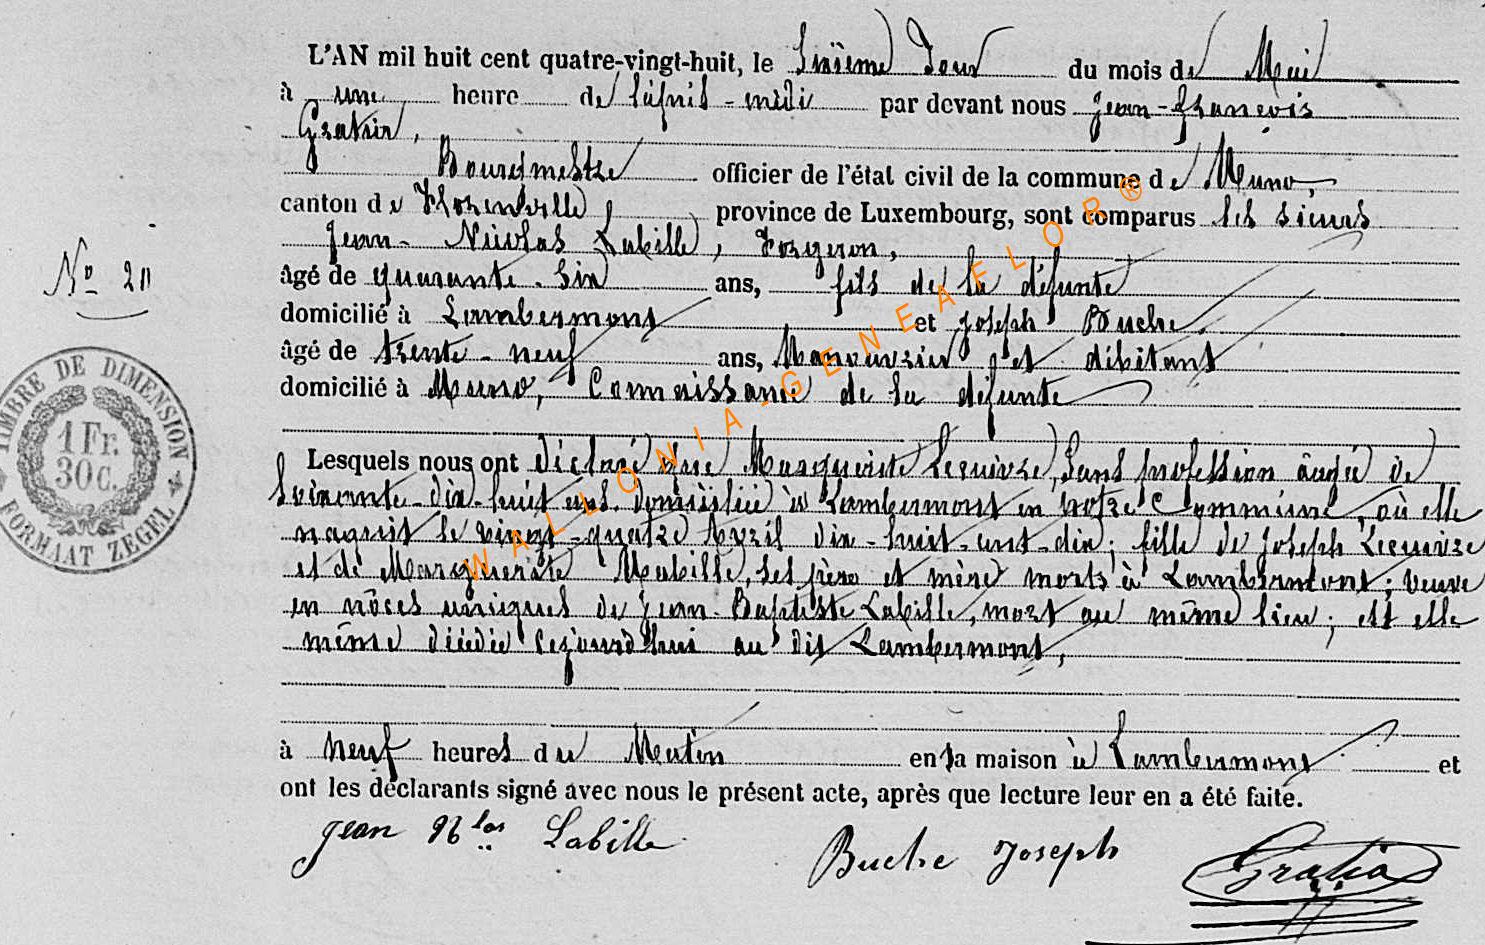 L'AN mil huit cent quatre-vingt-huit, le Sixième Jour du mois de Mai
à une heure de l'après-midi par devant nous Jean-François
Gratia,
Bourgmestre officier de l'état civil de la commune de Muno,
canton de Florenville, province de Luxembourg, sont comparus les sieurs
Jean-Nicolas Labille, Forgeron,
âgé de quarante-six ans, fils de la défunte
domicilié à Lambermont et Joseph Buche,
âgé de trente-neuf ans, Manouvrier et débitant
domicilié à Muno, Connaissance de la défunte
Lesquels nous ont déclaré que Marguerite Lecuivre, Sans profession âgée de
Soixante-dix-huit ans domiciliée à Lambermont en notre Commune, où elle
naquit le vingt-quatre Avril dix-huit-cent-dix; fille de Joseph Lecuivre
et de Marguerite Mabille, ses père et mère morts à Lambermont; veuve
en nôces uniques de Jean-Baptiste Labille, mort au même lieu; est elle
même décédée cejourd'hui au dit Lambermont,
à neuf heures du Matin en sa maison à Lambermont et
ont les déclarants signé avec nous le présent acte, après que lecture leur en a été faite.
Jean Nlas Labille Buche Joseph Gratia
No 20
TIMBRE DE DIMENSION
1 Fr.
30 C.
FORMAAT ZEGEL
WALLONIA-GENEAFLOR®